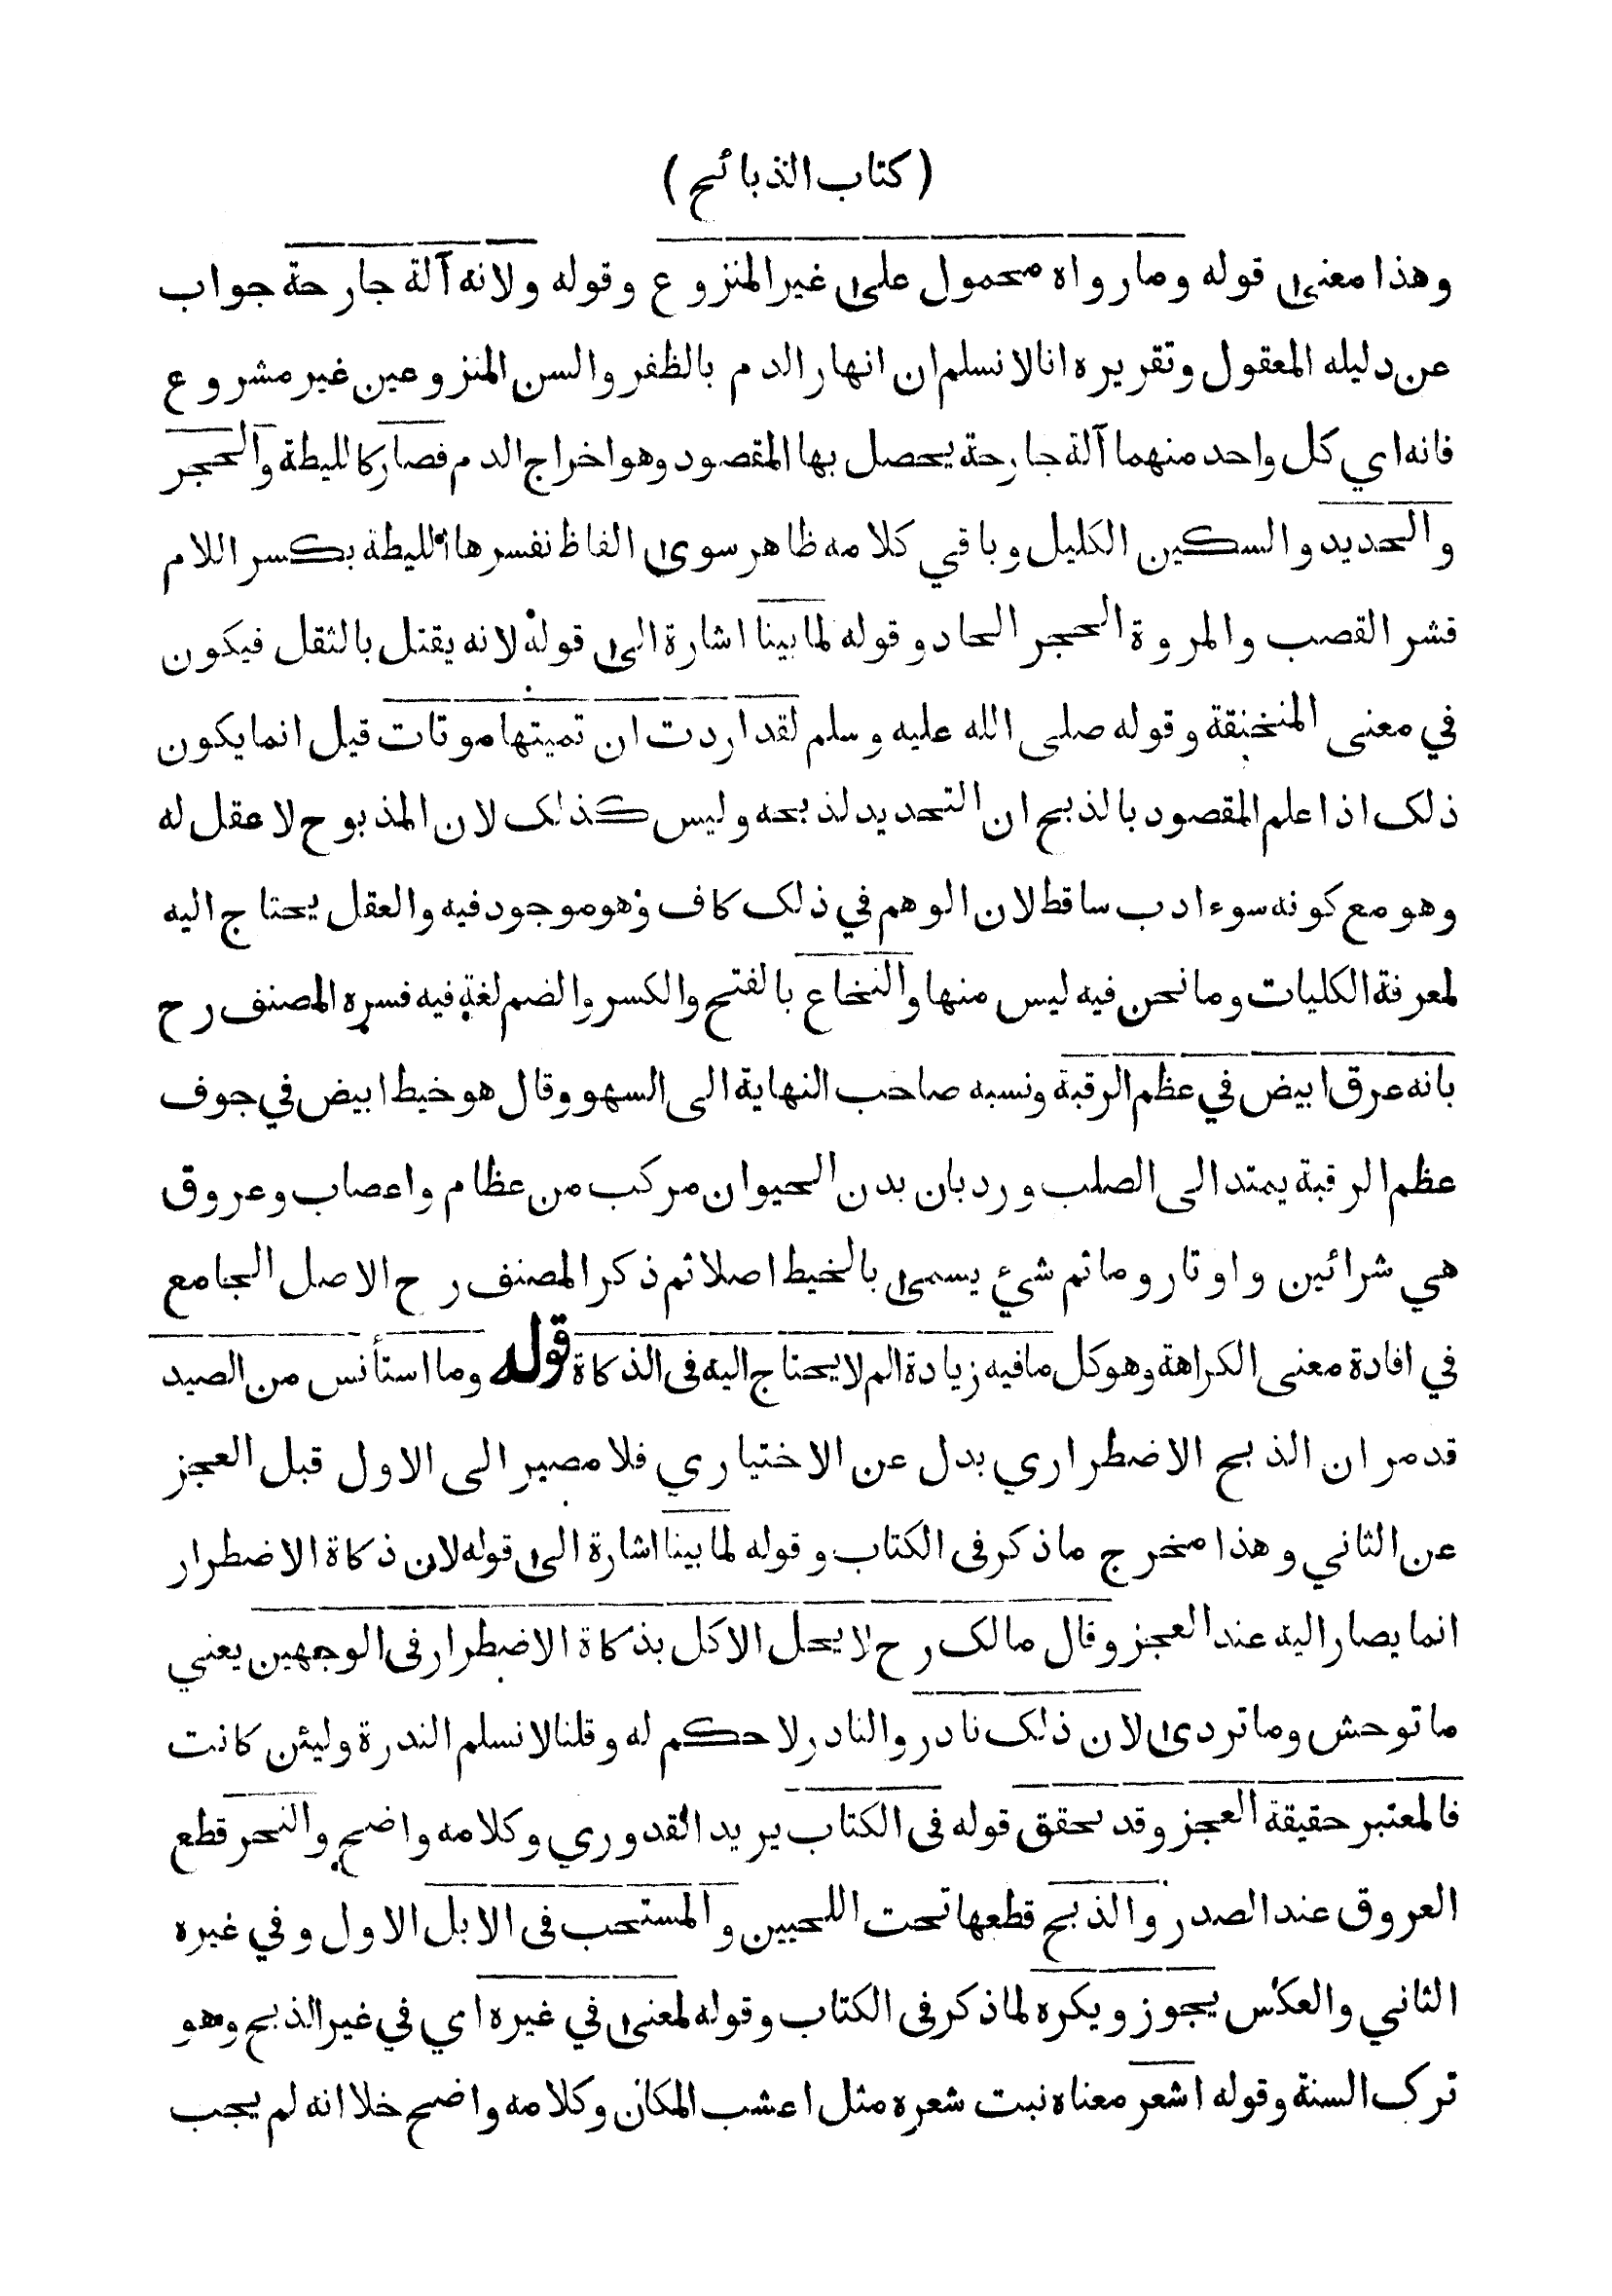 ( كتاب الذبائح )
وهذا معنى قوله وما رواه محمول على غير المنزوع وقوله ولانه آلة جارحة جواب
عن دليله المعقول وتقريره انا لا نسلم ان انهار الدم بالظفر والسن المنزوعين غير مشروع
فانه اي كل واحد منهما آلة جارحة يحصل بها المقصود وهو اخراج الدم فصار كالليطة والحجر
والحديد والسكين الكليل وباقي كلامه ظاهر سوى الفاظ نفسرها الليطة بكسر اللام
قشر القصب والمروة الحجر الحاد وقوله لما بينا اشارة الى قوله لانه يقتل بالثقل فيكون
في معنى المنخنقة وقوله صلى الله عليه وسلم لقد اردت ان تميتها موتات قيل انما يكون
ذلك اذا علم المقصود بالذبح ان التحديد لذبحه وليس كذلك لان المذبوح لا عقل له
وهو مع كونه سوء ادب ساقط لان الوهم في ذلك كاف وهو موجود فيه والعقل يحتاج اليه
لمعرفة الكليات وما نحن فيه ليس منها والنخاع بالفتح والكسر والضم لغة فيه فسره المصنف رح
بانه عرق ابيض في عظم الرقبة ونسبه صاحب النهاية الى السهو وقال هو خيط ابيض في جوف
عظم الرقبة يمتد الى الصلب ورد بان بدن الحيوان مركب من عظام واعصاب وعروق
هي شرائين واوتار وما ثم شيء يسمى بالخيط اصلا ثم ذكر المصنف رح الاصل الجامع
في افادة معنى الكراهة وهو كل ما فيه زيادة الم لا يحتاج اليه فى الذكاة قوله وما استأنس من الصيد
قد مر ان الذبح الاضطراري بدل عن الاختياري فلا مصير الى الاول قبل العجز
عن الثاني وهذا مخرج ما ذكر فى الكتاب وقوله لما بينا اشارة الى قوله لان ذكاة الاضطرار
انما يصار اليه عند العجز وقال مالك رح لا يحل الاكل بذكاة الاضطرار فى الوجهين يعني
ما توحش وما تردى لان ذلك نادر والنادر لا حكم له وقلنا لا نسلم الندرة وليئن كانت
فالمعتبر حقيقة العجز وقد تحقق قوله فى الكتاب يريد القدوري وكلامه واضح والنحر قطع
العروق عند الصدر والذبح قطعها تحت اللحيين والمستحب فى الابل الاول وفي غيره
الثاني والعكس يجوز ويكره لما ذكر فى الكتاب وقوله لمعنى في غيره اي في غير الذبح وهو
ترك السنة وقوله اشعر معناه نبت شعره مثل اعشب المكان وكلامه واضح خلا انه لم يجب